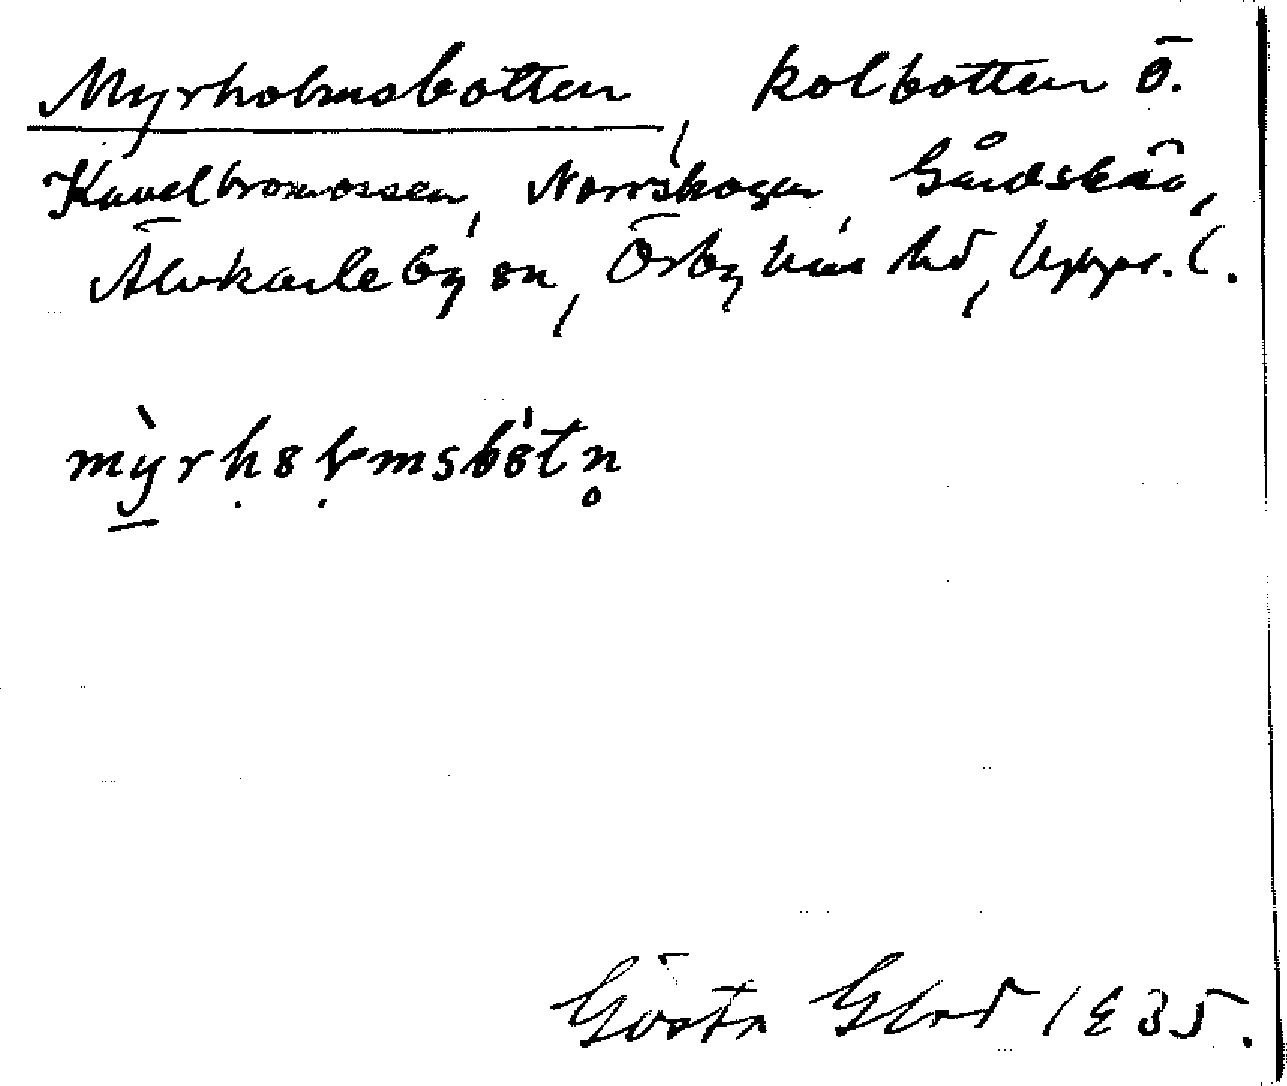 Myrholmsbotten, kolbotten ö.
Kavelbromossen, Norrskogen, Gårdskär,
Älvkarleby sn, Örbyhus hd, Upps. l.
mỳrhol̥msbòtn̥
Gösta 1935.